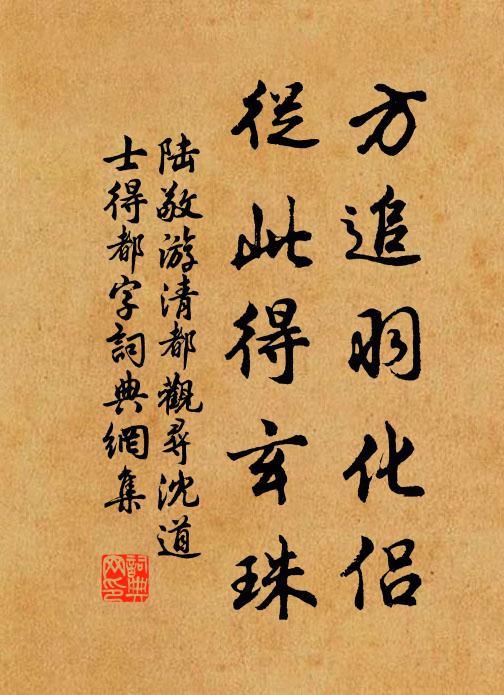 方追羽化侶
從此得玄珠
陆敬游清都觀尋沈道
士得都字詞典網集
詞典网印